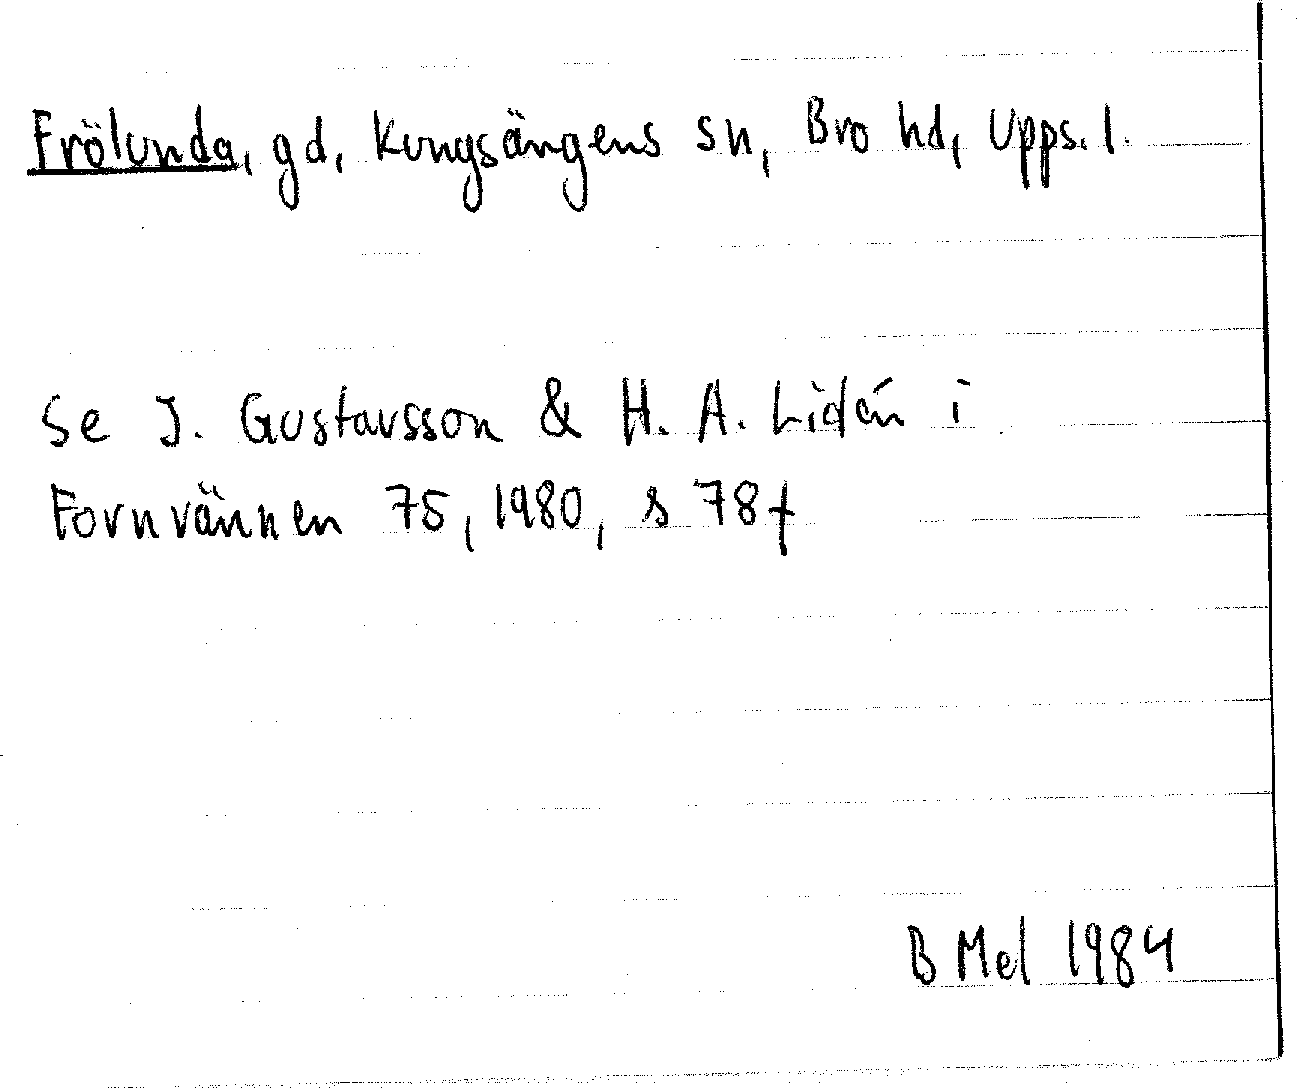 Frölunda, gd, Kungsängens sn, Bro hd, Upps. l.
Se J. Gustavsson & H. A. Lidén i
Fornvännen 75, 1980, s 78f
B Mel 1984